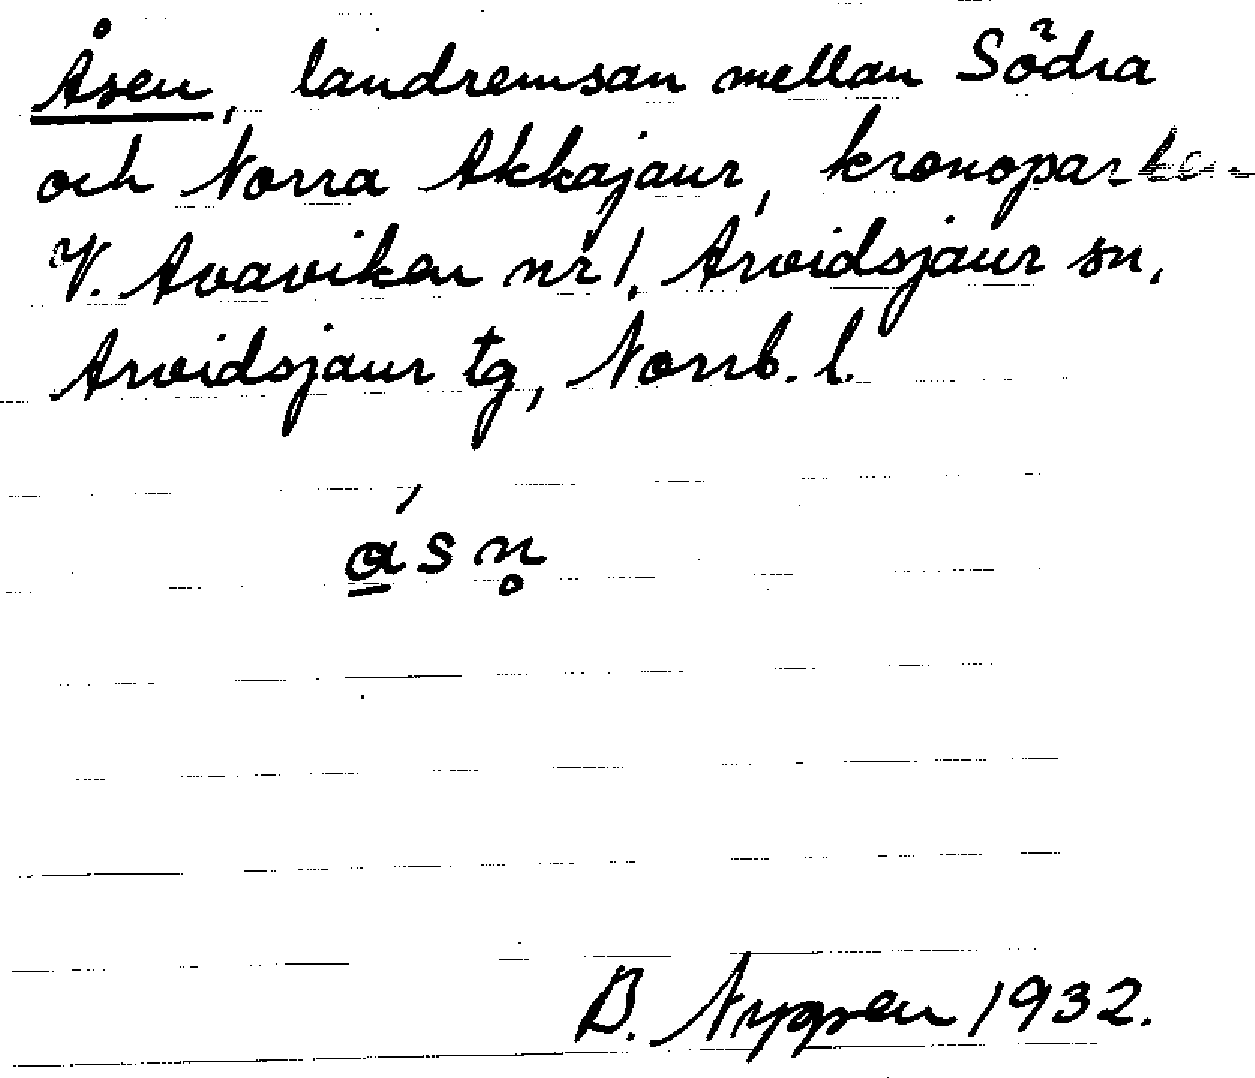 Åsen, landremsan mellan Södra
och Norra Akkajaur, kronoparken
V. Avaviken nr 1, Arvidsjaur sn,
Arvidsjaur tg, Norrb. l.
á̲ s n̥
B. Nygren 1932.